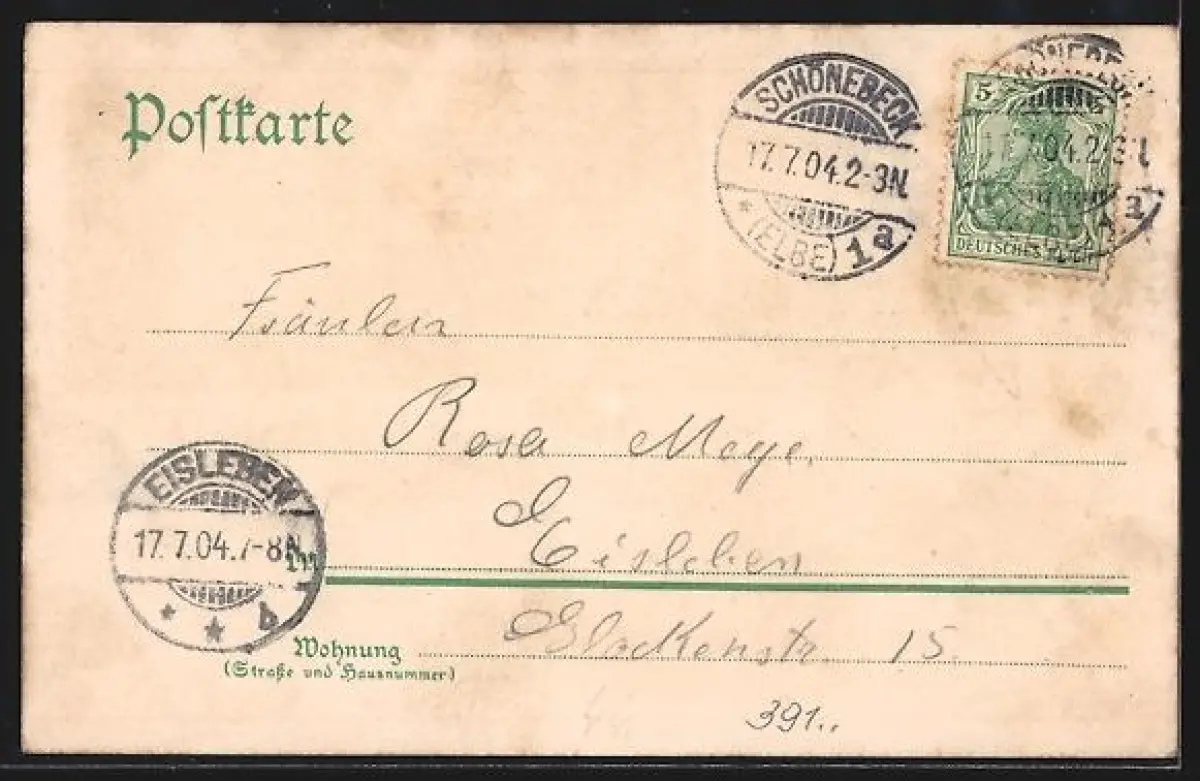 Postkarte
SCHÖNEBECK
17.7.04.2-3N.
* (ELBE) 1a
5 5
DEUTSCHES REICH
Fräulein
Rosa Meye.
Eisleben
EISLEBEN
17.7.04.7-8N.
* * b
In
Glockenstr. 15.
Wohnung
(Straße und Hausnummer)
391..